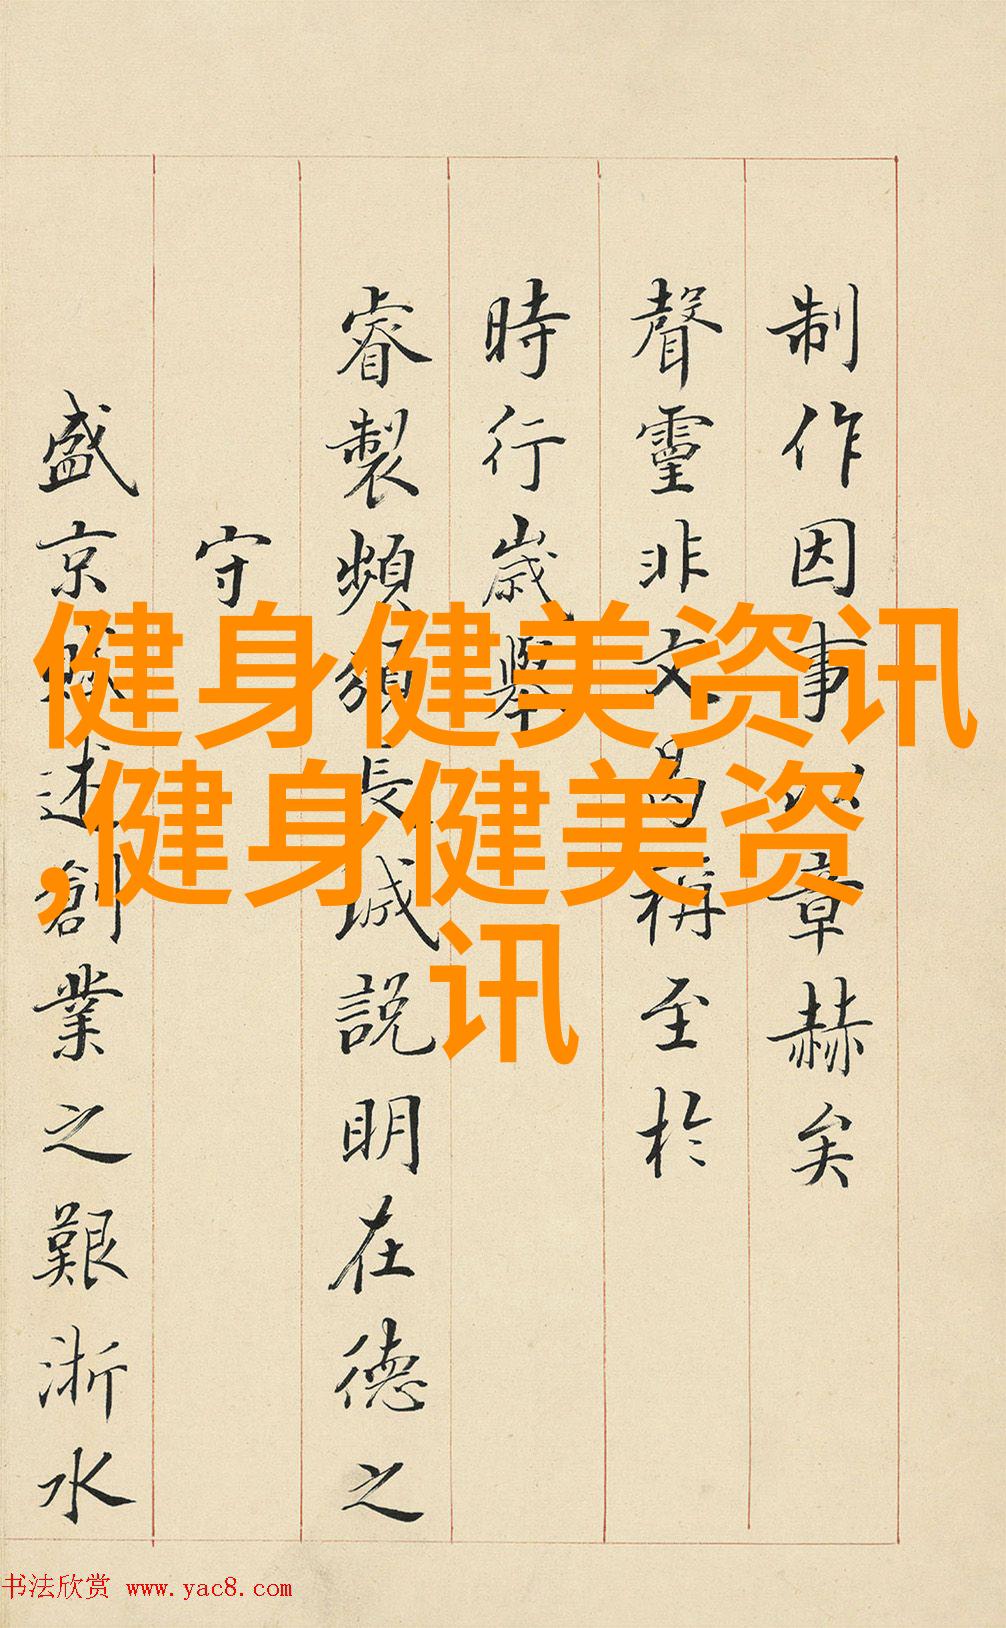 制作因事以章赫矣
聲靈非文曷稱至於
時行歲舉
睿製頻頒長城説明在德之
守
盛京賦述創業之艱浙水
健身健美资讯
,健身健美资
讯
书法欣赏 www.yac8.com